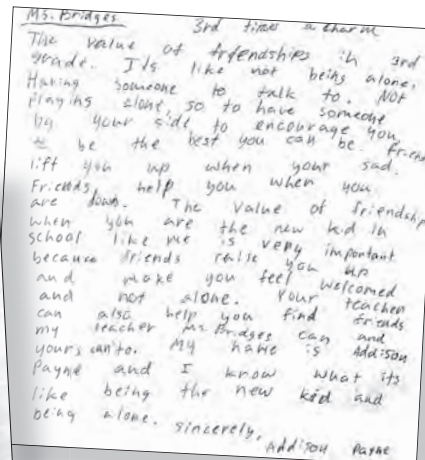 Ms. Bridges 3rd times a charm
The value of friendships in 3rd
grade. Its like not being alone,
Having someone to talk to. Not
playing alone, so to have someone
by your side to encourage you
to be the best you can be. friends
lift you up when your sad.
Friends, help you when you
are down. The value of friendship
when you are the new kid in
school like me is very important
because friends raise you up
and make you feel welcomed
and not alone. Your teacher
can also help you find friends
my teacher Ms. Bridges can and
yours can to. My name is Addison
Payne and I know what its
like being the new kid and
being alone. sincerely,
Addison Payne